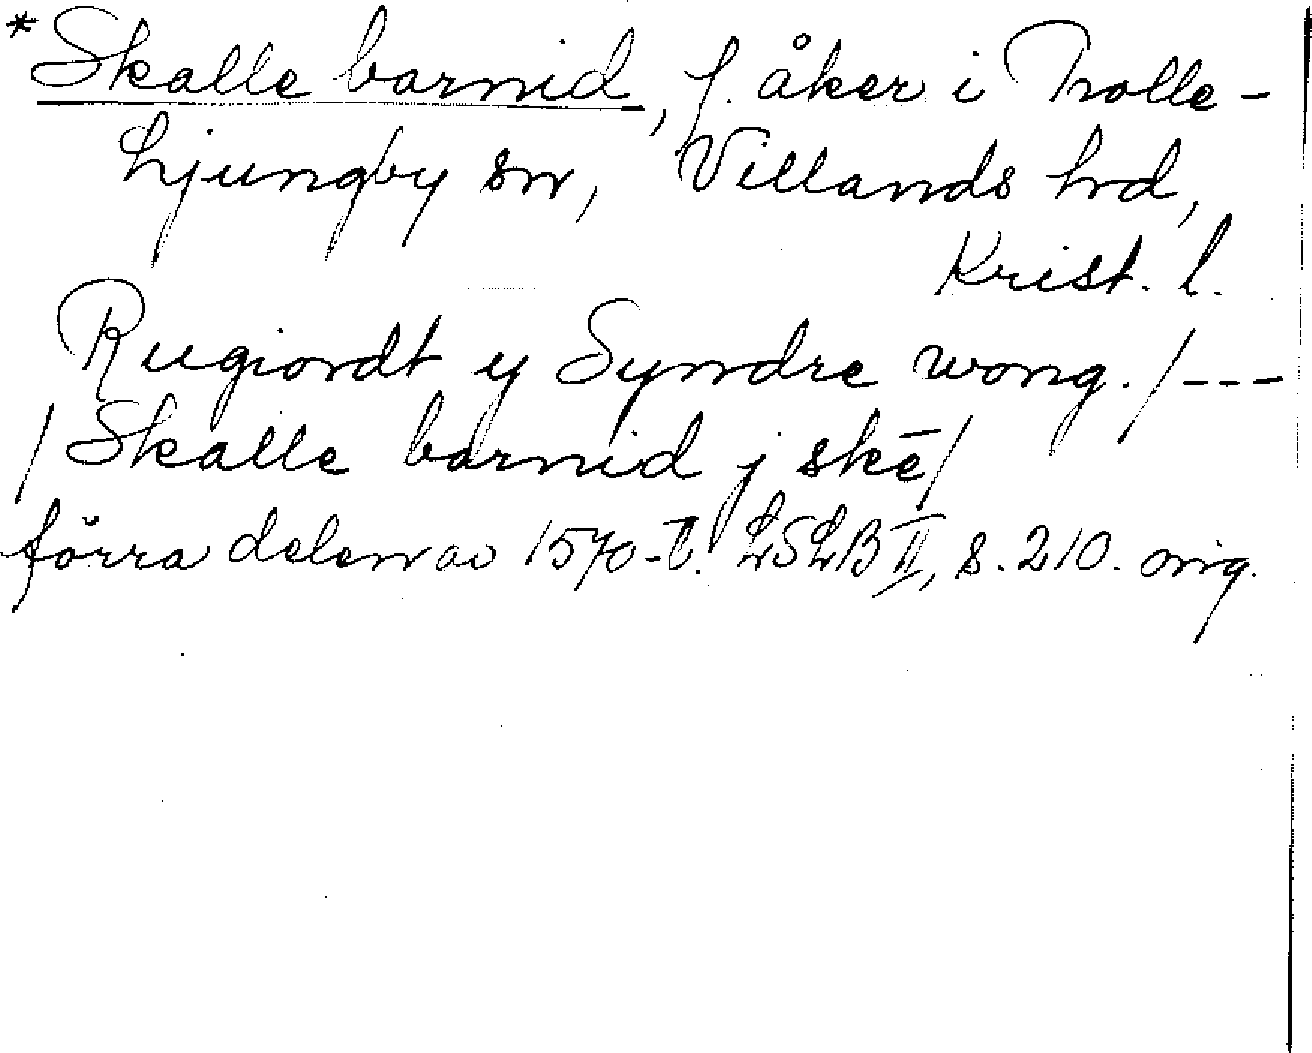 *Skalle barnid, f. åker i Trolle-
Ljungby sn, Villands hd,
Krist. l.
Rugiordt y Syndre wong. / ---
/ Skalle barnid j skē /
förra delen av 1570-t. LSLB II, s. 210. orig.